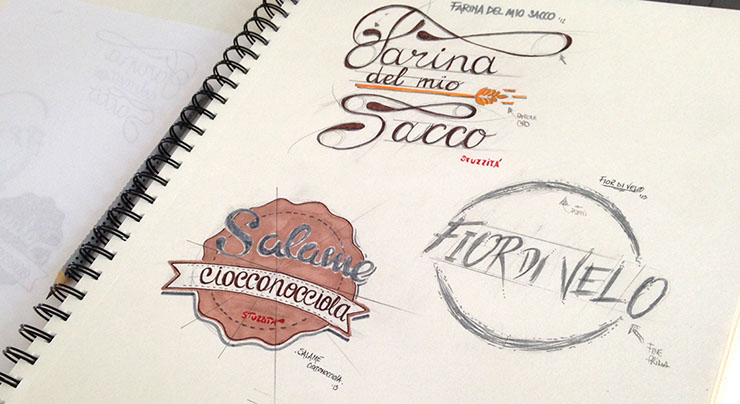 FARINA DEL MIO SACCO '12
Farina
del mio
Sacco
STUZZITÀ
FIOR DI VELO
'13
FIOR DI VELO
Salame
ciocconocciola
SALAME
CIOCCONOCCIOLA
'13